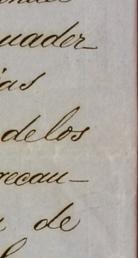 uader
ias
de los
recau-
de